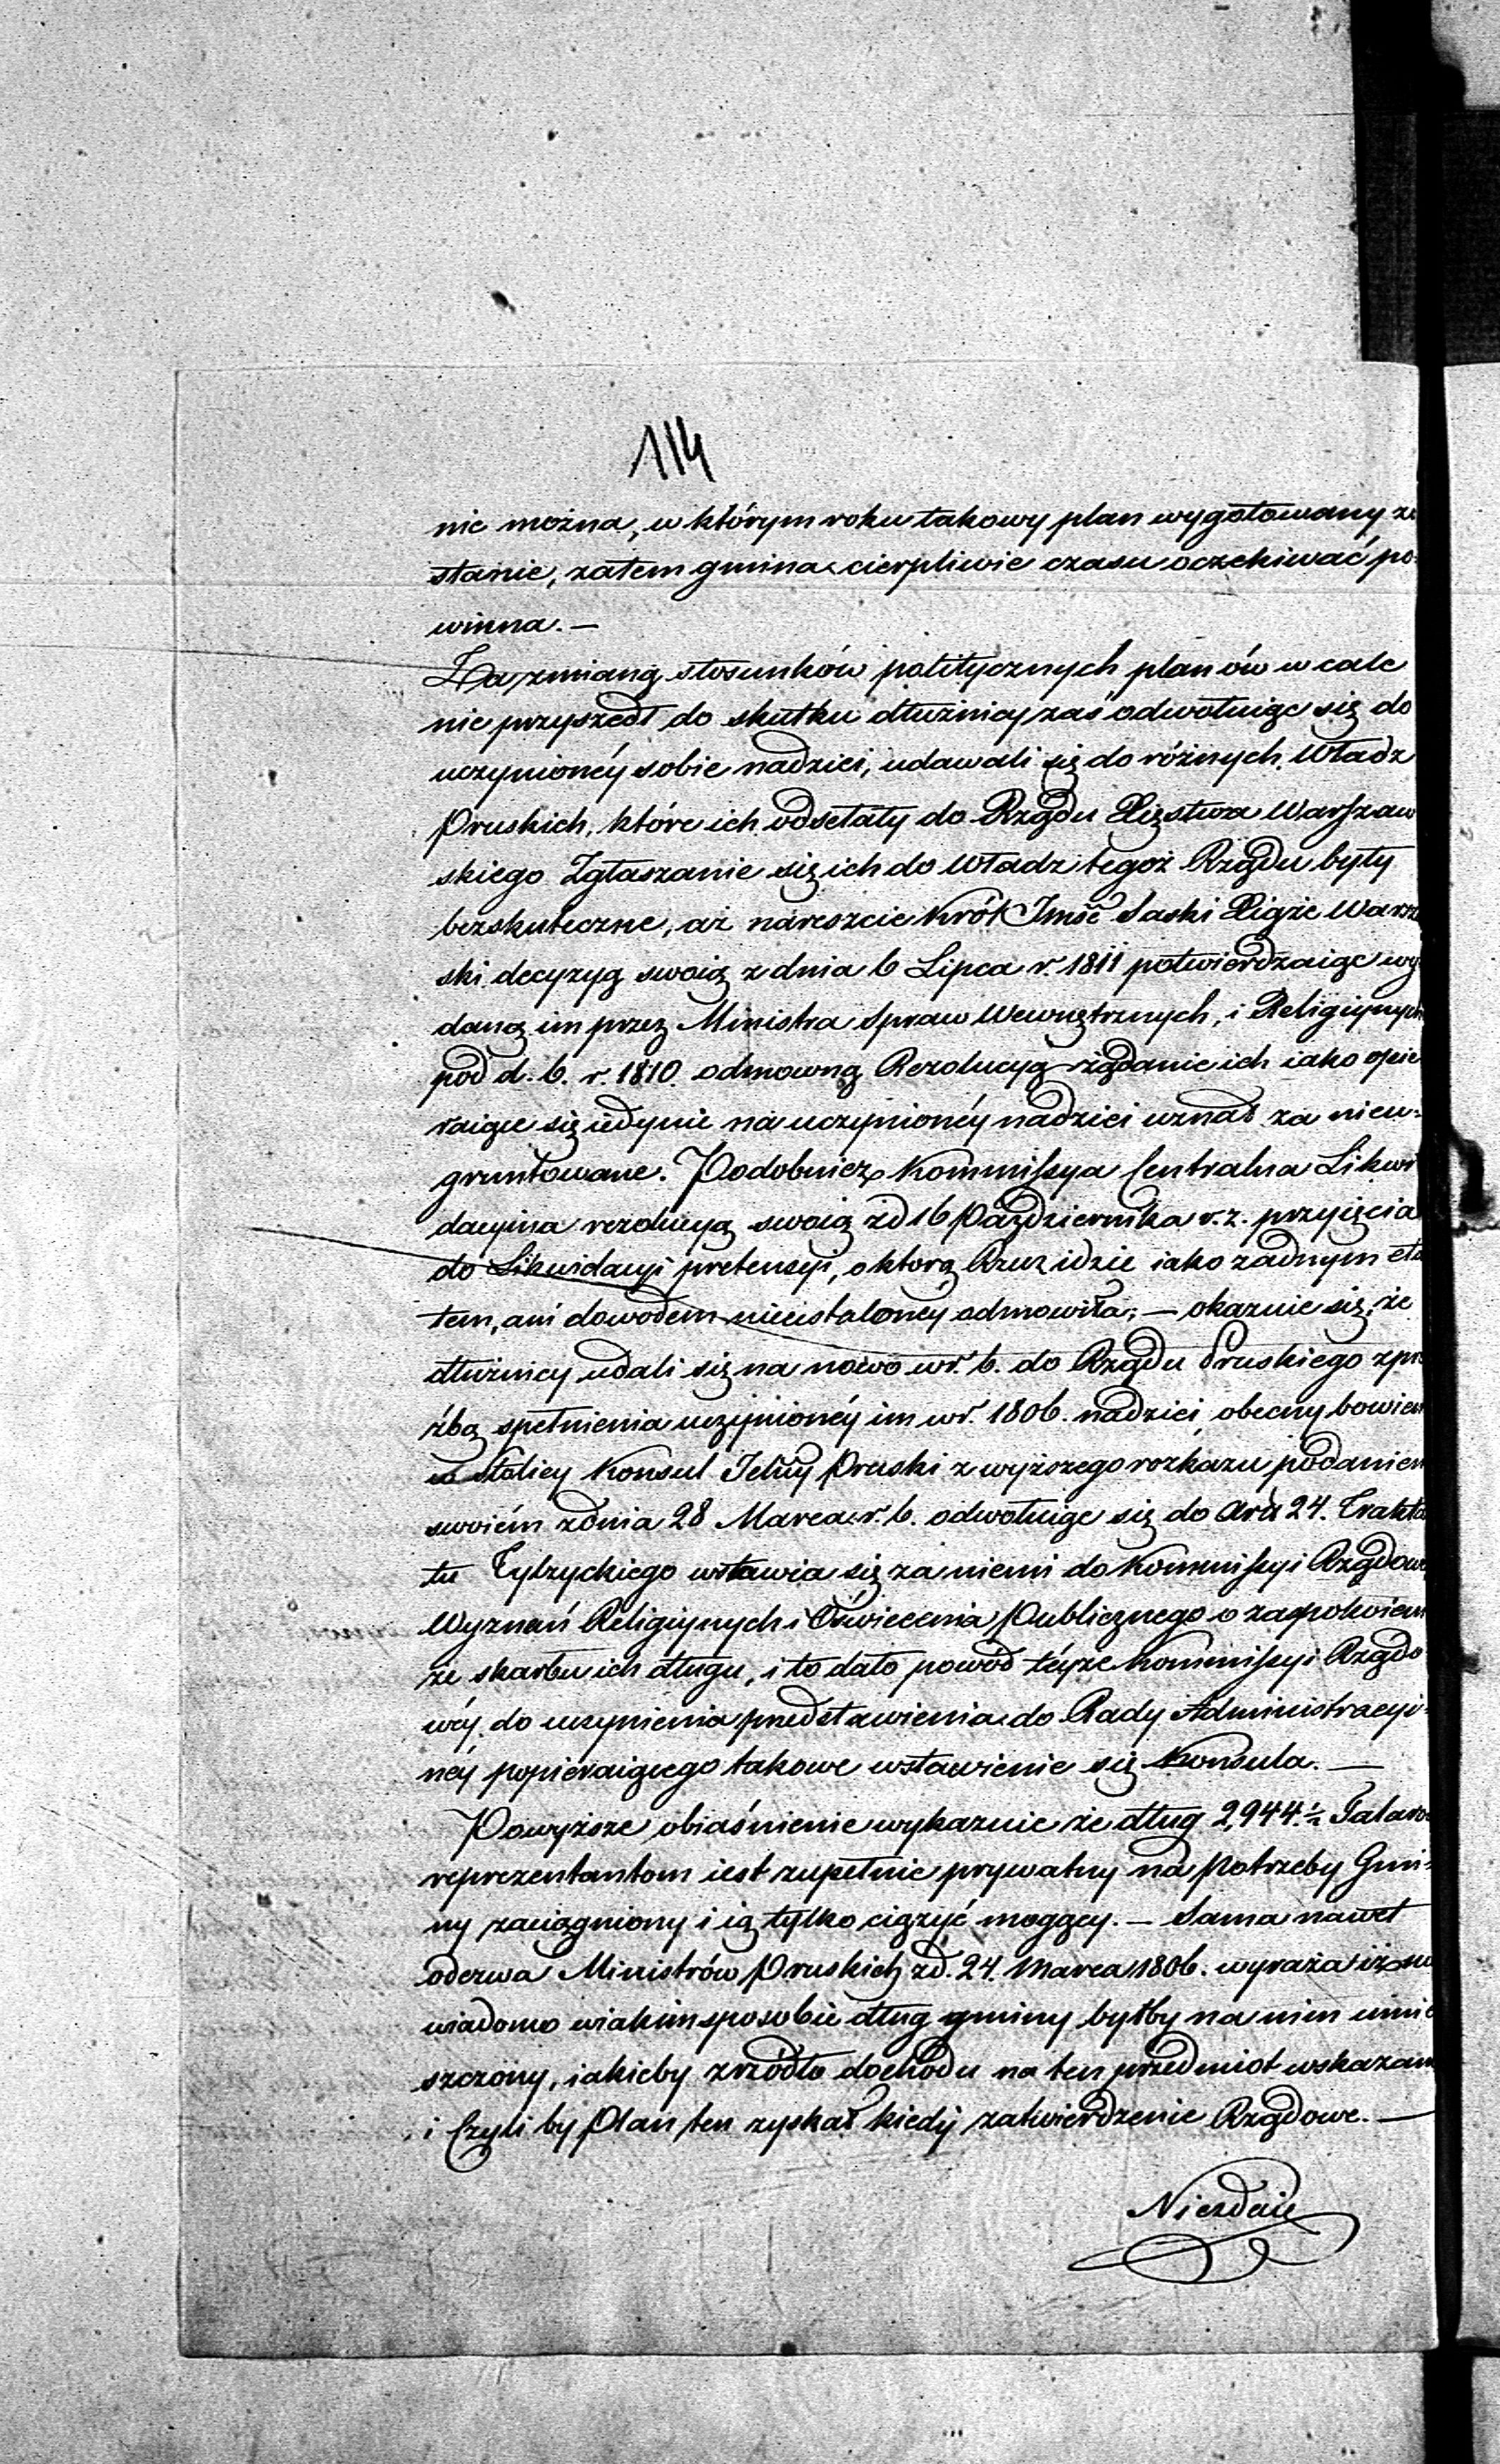 114
nie można, w którym roku takowy plan wygotowany zo
stanie, zatem gmina cierpliwie czasu oczekiwać po-
winna. —
Za zmianą stosunków politycznych plan ów w cale
nie przyszedł do skutku dłużnicy zaś odwołuiąc się do
uczynionéy sobie nadziei, udawali się do różnych Władz
Pruskich, które ich odsełały do Rządu Xięstwa Warszaw
skiego Zgłaszanie się ich do Władz tegoż Rządu były
bezskuteczne, aż nareszcie Król Jmść Saski Xiąże Warsz
ski decyzyą swoią z dnia 6 Lipca r. 1811 potwierdzaiąc wy
daną im przez Ministra Spraw Wewnętrznych, i Religiynych
pod d. 6. r. 1810. odmowną Rezolucyą żądanie ich iako opie
raiące się iedynie na uczynionéy nadziei uznał za nieu-
gruntowane. Podobnież Kommissya Centralna Likwi
dacyina rezolucyą swoią zd 16 Października r. z. przyięcia
do Likwidacyi pretensyi, o którą Rzecz idzie iako żadnym
tem, ani dowodem nieustalonéy odmowiła; — okazuie się, że
dłużnicy udali się na nowo w r. b. do Rządu Pruskiego z pro
źbą spełnienia uczynionéy im w r. 1806. nadziei, obecny bowiem
w stolicy Konsul Jelny Pruski z wyższego rozkazu podaniem
swoiém z dnia 28 Marca r. b. odwołuiąc się do Artu 24. Trakta
tu Tylzyckiego wstawia się za niemi do Kommissyi Rządowe
Wyznań Religiynych i Oświecenia Publicznego o zaspokoienie
ze skarbu ich długu, i to dało powód téyże Kommissyi Rządo
wéy do uczynienia przedstawienia do Rady Administracyi-
néy popieraiącego takowe wstawienie się Konsula. —
Powyższe obiaśnienie wykazuie że dług 2,944.½ Talarow
reprezentantom iest zupełnie prywatny na potrzeby Gmi-
ny zaciągniony i ią tylko ciążyć mogący. — Sama nawet
odezwa Ministrów Pruskich zd. 24. Marca 1806. wyraża iż
wiadomo w iakim sposobie dług gminy byłby na nim umie
szczony, iakieby zrzódło dochodu na ten przedmiot wskazane
i Czyli by Plan ten zyskał kiedy zatwierdzenie Rządowe. —